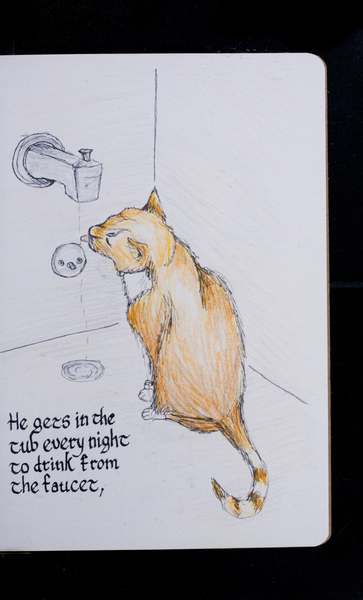 He gets in the
tub every night
to drink from
the faucet,